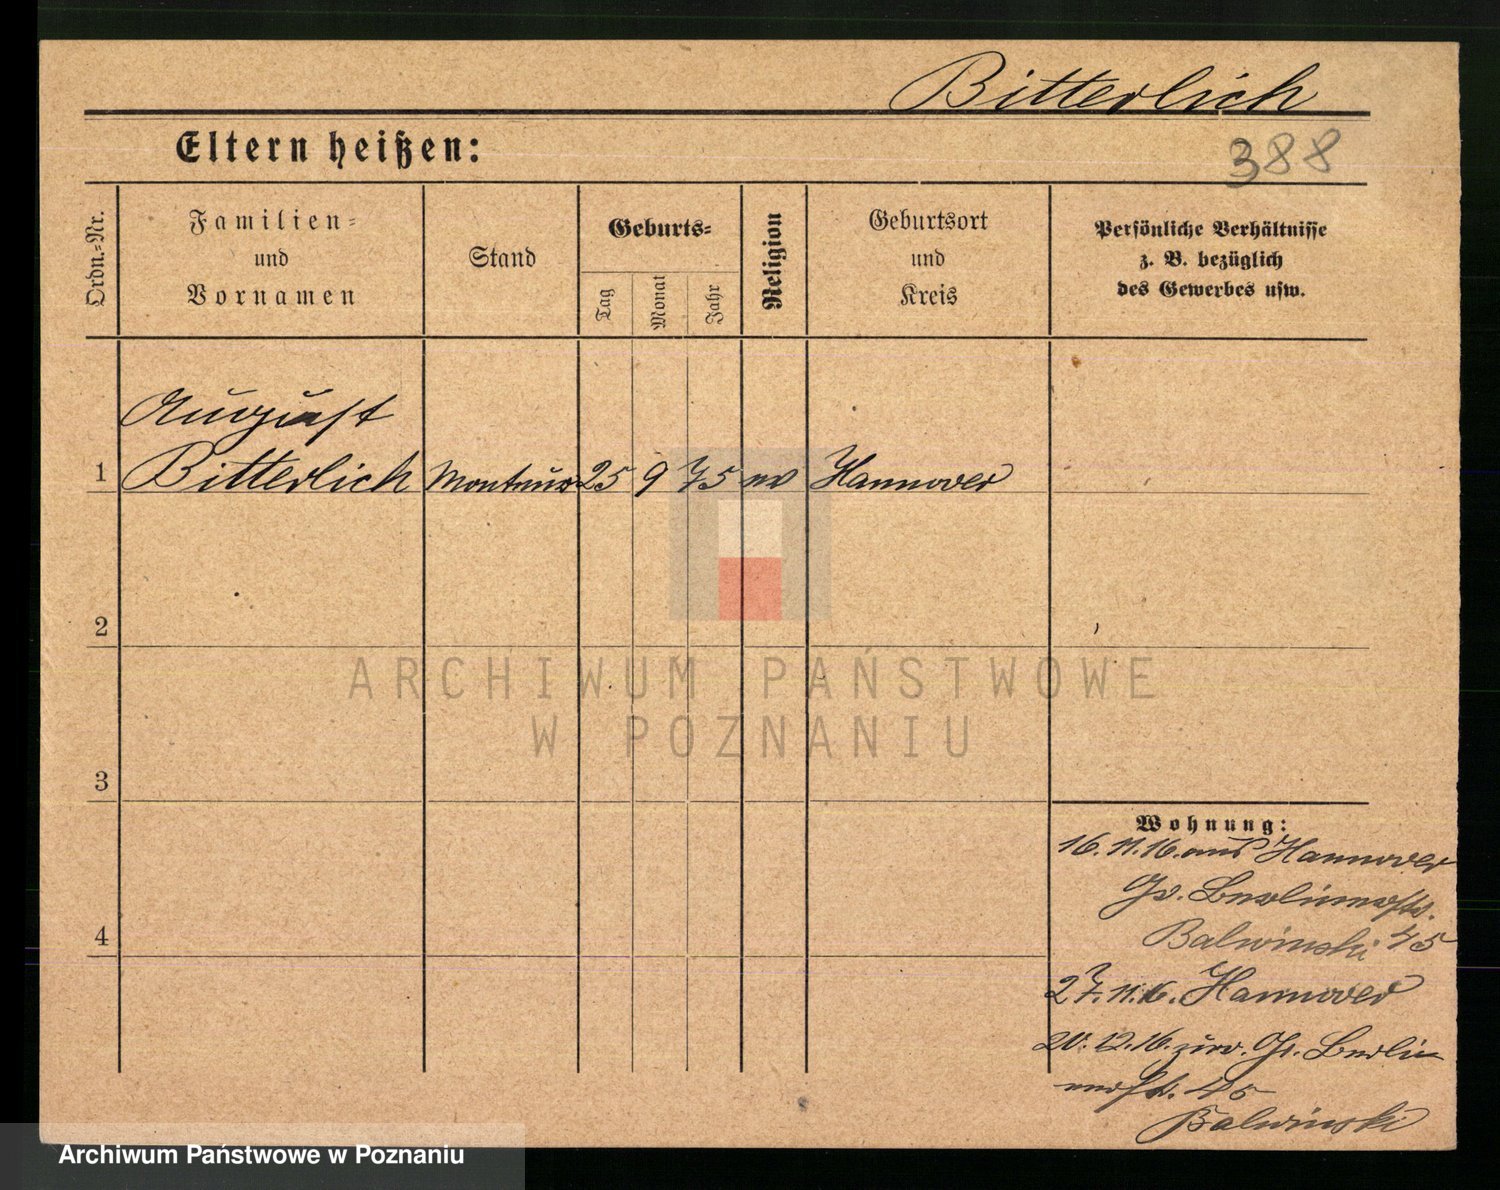 Bitterlich
388
Eltern heißen:
Ordn.-Nr.
Familien-
und
Vornamen
Stand
Geburts-
Tag
Monat
Jahr
Religion
Geburtsort
und
Kreis
Persönliche Verhältnisse
z. B. bezüglich
des Gewerbes usw.
August
1 Bitterlich Monteur 25 9 75 ev Hannover
2
3
4
Wohnung:
16.11.16. aus Hannover
Gr. Berlinerstr.
Balwinski 45
27.11.16. Hannover
20.12.16. zur. Gr. Berlin
erstr. 45
Balwinski
ARCHIWUM PAŃSTWOWE
W POZNANIU
Archiwum Państwowe w Poznaniu